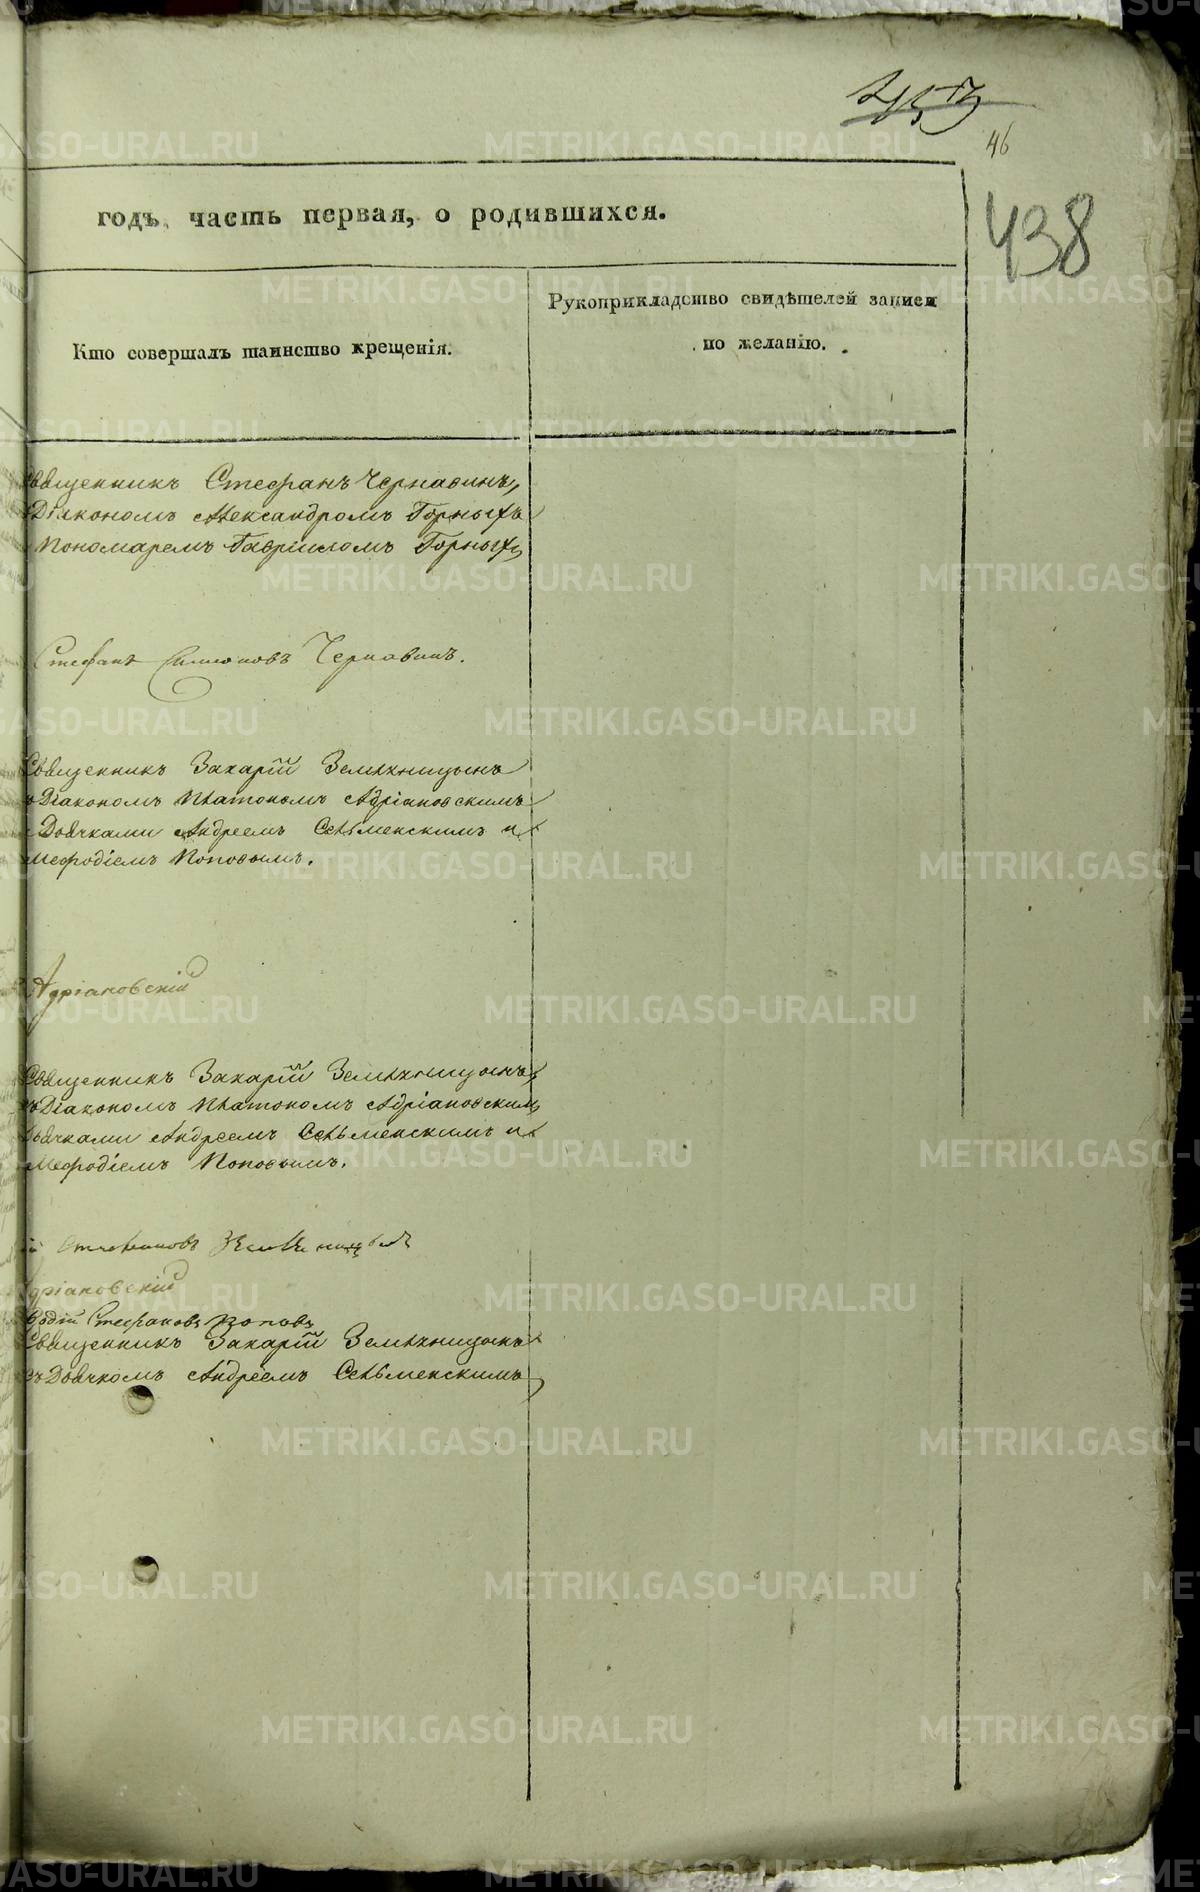 46
438
годъ, часть первая, о родившихся.
Кто совершалъ таинство крещенія.
Рукоприкладство свидѣтелей записи
по желанію.
Священникъ Стефанъ Чернавинъ,
Діякономъ Александромъ Горныхъ
Пономаремъ Гавріиломъ Горныхъ
Стефанъ Симоновъ Чернавинъ.
Священникъ Захарій Земляницынъ
Діакономъ Платономъ Адріановскимъ
Дьячками Андреемъ Сельменскимъ и
Мефодіемъ Поповымъ.
Адріановскій
Священникъ Захарій Земляницынъ
съ Діакономъ Платономъ Адріановским
Дьячками Андреемъ Сельменскимъ и
Мефодіемъ Поповымъ.
й Стефановъ Земляницынъ
дріановскій
фодій Стефановъ Поповъ
Священникъ Захарій Земляницынъ
съ Дьячкомъ Андреемъ Сельменскимъ
METRIKI.GASO-URAL.RU